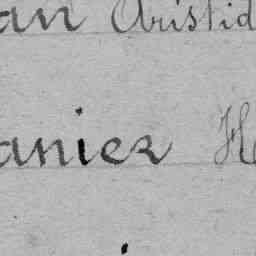 an Aristid
anier H